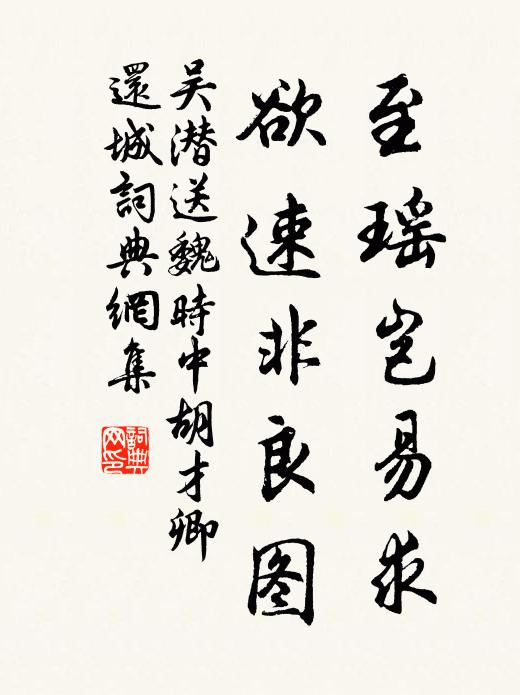 至瑶岂易求
欲速非良图
吴潜送魏時中胡才卿
還城詞典網集
詞典
网印